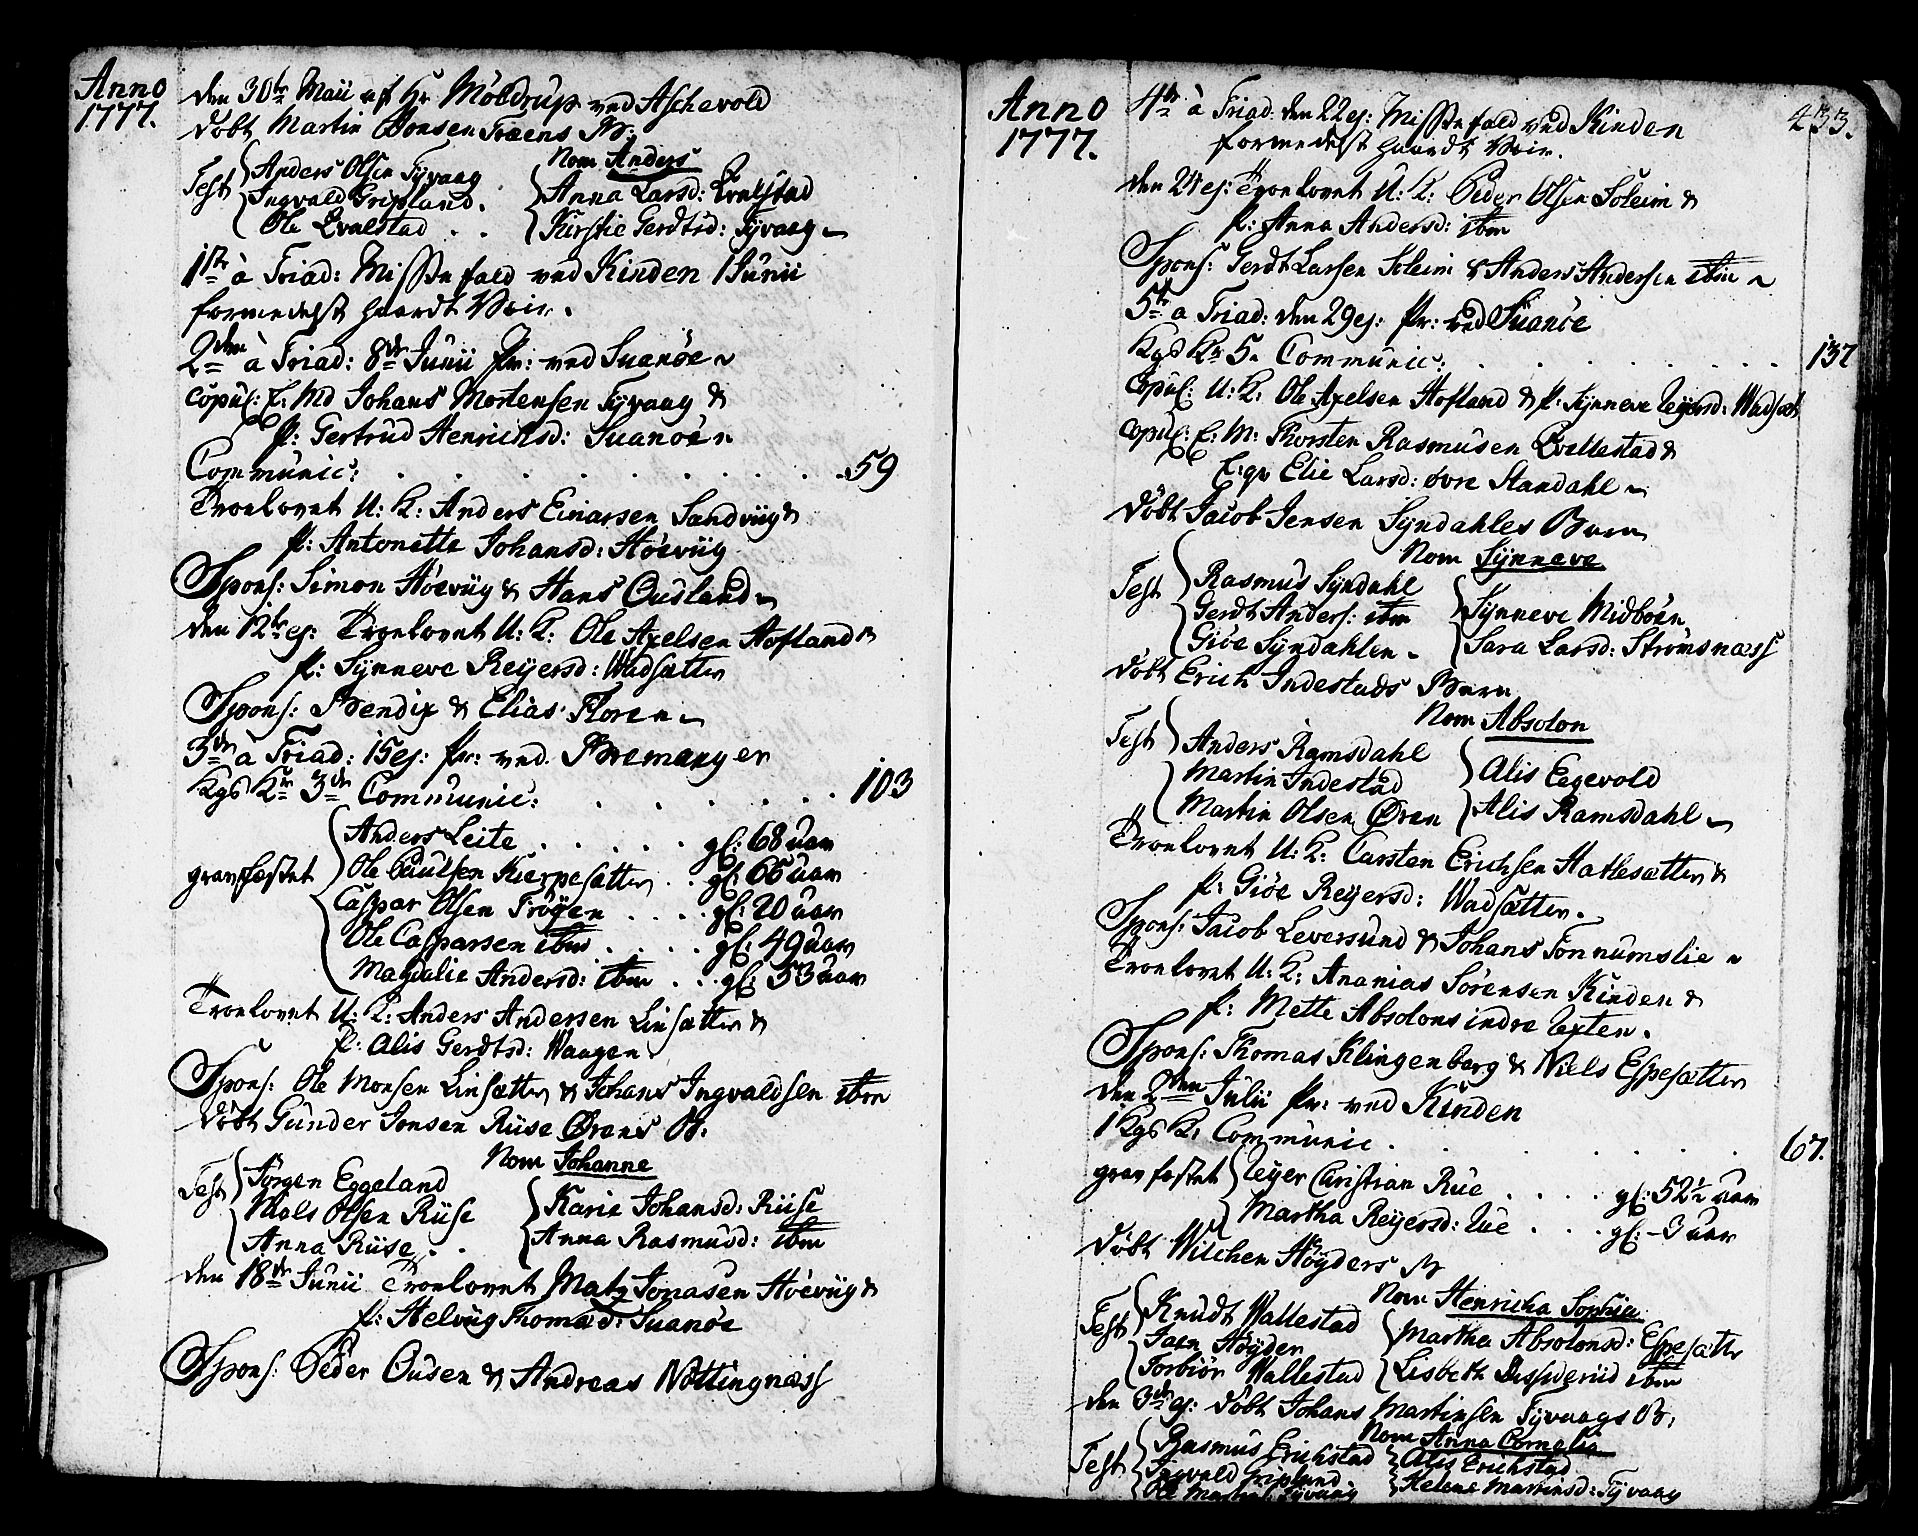 Anno
1777.
den 30te Maii af Hr Möldrup ved Aschevold
döbt Martin Joensen Træens B:
Nom Anders
Test Anders Olsen Tyvaag
Ingvald Gripland.
Ole Qvalstad . .
Anna Larsd: Qvalstad
Kirstie Gerdtsd: Tyvaag
1ste à Triad: Missefald ved Kinden 1 Junii
formedelst haardt Veir.
2den à Triad: 8de Junii Pr: ved Suanöe
copul: E: Md Johans Mortensen Tyvaag &
P: Gertrud Henrichsd: Suanöe
Communic: . . . . . . . . 59
Troelovet U: K: Anders Einarsen Sandviig &
P: Antonette Johansd: Höeviig
Spons: Simon Höeviig & Hans Oudland
den 12te ej: Troelovet U: K: Ole Axelsen Hofland &
P: Synneve Reyersd: Wadsætter
Spons: Bendix & Elias Floren
3die à Triad: 15 ej: Pr: ved Bremanger
Kgs Kr 3die Communic: . . . . . . 103
gravfæstet
Anders Leite . . . . . gl: 68 aar
Ole Paulsen Kierpesætter . . gl: 66 aar
Caspar Olsen Tröyen . . . . gl: 20 aar
Ole Casparsen ibm . . . . gl: 49 aar
Magdalie Andersd: ibm . . gl: 53 aar
Troelovet U: K: Anders Andersen Linsætter &
P: Alis Gerdtsd: Waagen
Spons: Ole Monsen Linsætter & Johans Ingvaldsen ibm
döbt Gunder Jonsen Riise Ørens B:
Nom Johanne
Test Jörgen Eggeland
Niels Olsen Riise
Anna Riise . .
Karie Johansd: Riise
Anna Rasmusd: ibm
den 18de Junii Troelovet Matz Jonasen Höeviig &
P: Helvig Thomasd: Suanöe
Spons: Peder Ousen & Andreas Nöttingnæss
Anno
1777.
433.
4de à Triad: den 22 ej: Missefald ved Kinden
formedelst haardt Veir.
den 24 ej: Troelovet U: K: Peder Olsen Soleim &
P: Anna Andersd: ibm
Spons: Gerdt Larsen Soleim & Anders Andersen ibm
5te a Triad: den 29 ej: Pr: ved Suanöe
Kgs Kr 5. Communic: . . . . . . . 137
Copul: U: K: Ole Axelsen Hofland & P: Synneve Reyersd: Wadsæt
copul: E: M: Thorsten Rasmusen Qvellestad &
E: qv Elie Larsd: övre Standahl
döbt Jacob Jensen Syndahles Barn
Nom Synneve
Test Rasmus Syndahl
Gerdt Anders: ibm
Giöe Syndahlen
Synneve Midböen
Sara Larsd: Strömsnæss
döbt Erich Indestads Barn
Nom Absolon
Test Anders Ramsdahl
Martin Indestad
Martin Olsen Øren
Alis Eegevold
Alis Ramsdahl
Troelovet U: K: Carsten Erichsen Hatlesætter &
P: Giöe Reyersd: Wadsætter.
Spons: Jacob Leversund & Johans Tonnumslie
Troelovet U: K: Ananias Sörensen Kinden &
P: Mette Absolons indre Yxten.
Spons: Thomas Klingenberg & Niels Espesætter
den 2den Julii Pr: ved Kinden
1 Kgs K: Communic . . . . . . 67.
gravfæstet Reyer Christian Rue . . . . gl: 52½ aar
Martha Reyersd: Rue . . . gl: 3 aar
döbt Wilchen Höyders B
Nom Henricha Sophia
Test Knudt Wallestad
Jaen Höyden
Torbiör Wallestad
Martha Absolonsd: Espesætter
Lisbeth ibm
den 3die ej: döbt Johans Martinsen Tyvaags B:
Nom Anna Cornelia
Test Rasmus Erichstad
Ingvald Gripland
Ole Tyvaag
Alis Erichstad
Helene Martinsd: Tyvaag